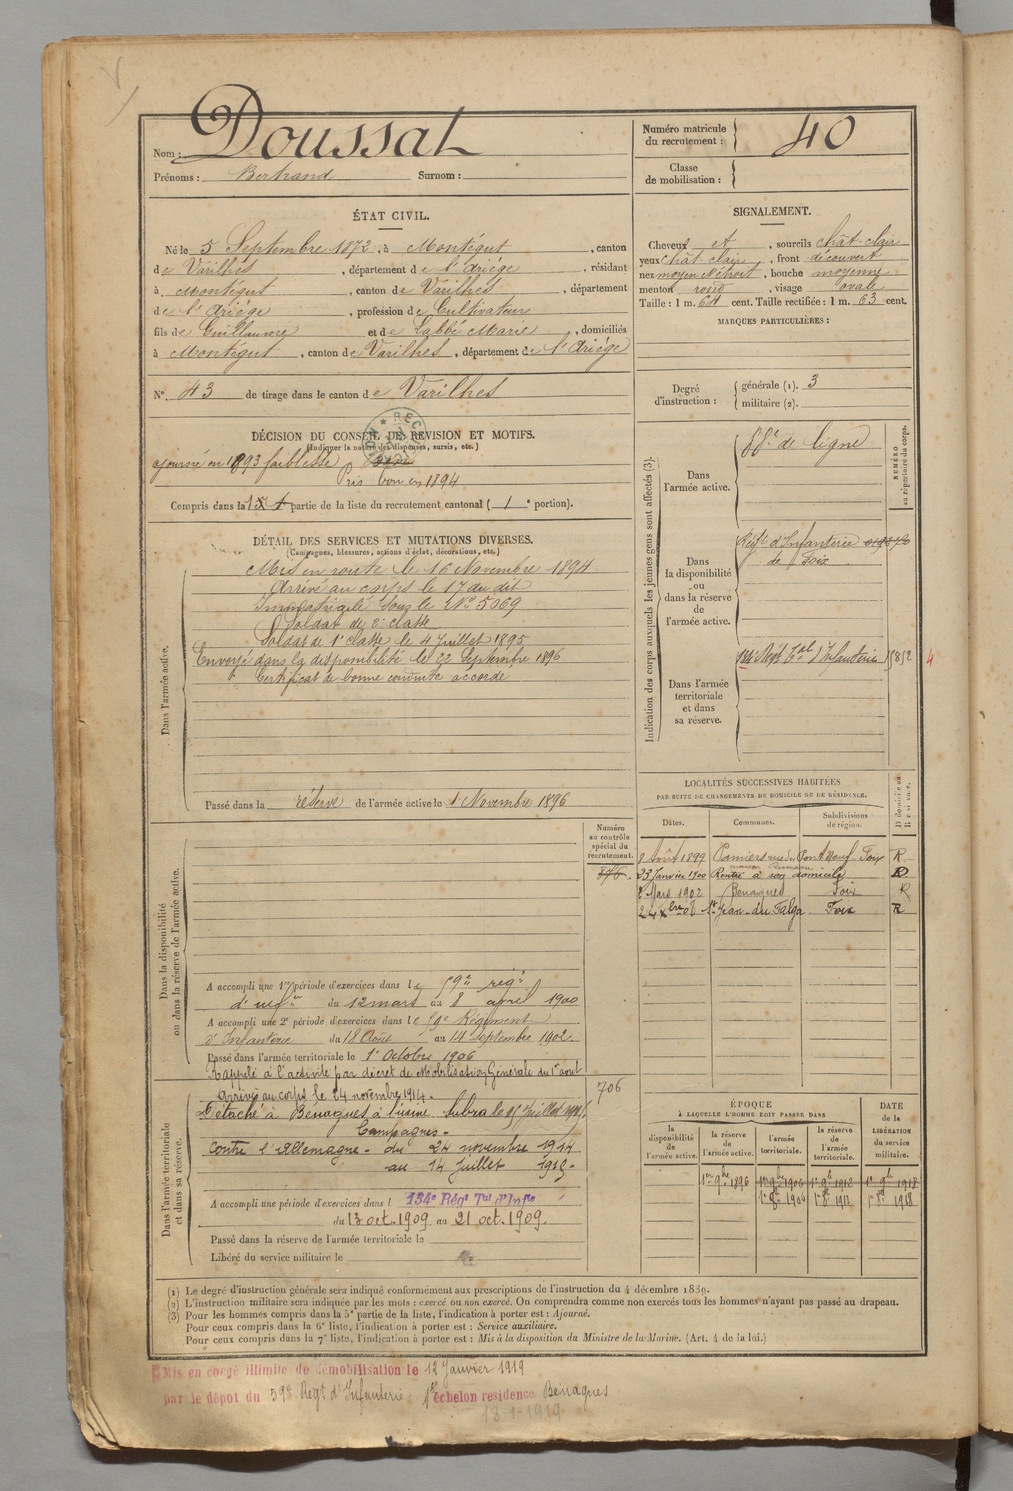 Nom : Doussat
Prénoms : Bertrand Surnom :
Numéro matricule du recrutement : 40
Classe de mobilisation :
ÉTAT CIVIL.
Né le 5 Septembre 1872, à Montégut, canton
de Varilhes, département de l'Ariége, résidant
à Montégut, canton de Varilhes, département
de l'Ariége, profession de Cultivateur
fils de Guillaume et de Labbé Marie, domiciliés
à Montégut, canton de Varilhes, département de l'Ariége
N° 43 de tirage dans le canton de Varilhes
SIGNALEMENT.
Cheveux et, sourcils chât-clair
yeux chât-clair, front découvert
nez moyen étroit, bouche moyenne
menton rond, visage ovale
Taille : 1 m. 64 cent. Taille rectifiée : 1 m. 63 cent.
MARQUES PARTICULIÈRES :
Degré d'instruction : générale (1). 3
militaire (2).
DÉCISION DU CONSEIL DE REVISION ET MOTIFS.
(Indiquer la nature des dispenses, sursis, etc.)
ajourné en 1893 faiblesse
Pris bon en 1894
Compris dans la 1 partie de la liste du recrutement cantonal (1e portion).
DÉTAIL DES SERVICES ET MUTATIONS DIVERSES.
(Campagnes, blessures, actions d'éclat, décorations, etc.)
Dans l'armée active.
Mis en route le 16 Novembre 1894
Arrivé au corps le 17 du dit
Immatriculé sous le N° 5069
Soldat de 2e classe
Soldat de 1e classe le 4 Juillet 1895
Envoyé dans la disponibilité le 22 Septembre 1896
Certificat de bonne conduite accordé
Passé dans la réserve de l'armée active le 1 Novembre 1896
Indication des corps auxquels les jeunes gens sont affectés (3).
NUMÉRO au répertoire du corps.
Dans l'armée active. de ligne
Dans la disponibilité ou dans la réserve de l'armée active.
Régt d'Infanterie
de Foix
Dans l'armée territoriale et dans sa réserve.
Regt tal d'Infanterie
4
LOCALITÉS SUCCESSIVES HABITÉES
PAR SUITE DE CHANGEMENTS DE DOMICILE OU DE RÉSIDENCE.
Dates. Communes. Subdivisions de région. D domicile ou R résidence.
août 1899 Pamiers rue du Pont Neuf Foix R
23 Janvier 1900 Rentré à son domicile
Mars 1902 Benagues Foix R
St Jean-du-Falga Foix R
Numéro au contrôle spécial du recrutement.
Dans la disponibilité ou dans la réserve de l'armée active.
A accompli une 1re période d'exercices dans le 59e régt
d'infie du 12 mars au 8 avril 1900
A accompli une 2e période d'exercices dans le 59e Régiment
d'Infanterie du 18 Août au 14 Septembre 1902.
Passé dans l'armée territoriale le 1er Octobre 1906
Rappelé à l'activité par décret de Mobilisation Générale du 1er août
706
Dans l'armée territoriale et dans sa réserve.
Arrivé au corps le 24 novembre 1914.
Détaché à Bénagues à l'usine le 15 Juillet 1915.
Campagnes.
contre l'Allemagne - du 24 novembre 1914
au 14 juillet 1915.
A accompli une période d'exercices dans l 134e Régt Tal d'Infie
du 13 oct. 1909 au 21 oct. 1909.
Passé dans la réserve de l'armée territoriale le
Libéré du service militaire le
ÉPOQUE
À LAQUELLE L'HOMME DOIT PASSER DANS
DATE de la LIBÉRATION du service militaire.
la disponibilité de l'armée active. la réserve de l'armée active. l'armée territoriale. la réserve de l'armée territoriale.
1er 9bre 1896 1er 9bre 1906 1er 9bre 1912 1er 9bre 1918
1er 8bre 1906 1er 8bre 1912 1er 8bre 1918
(1) Le degré d'instruction générale sera indiqué conformément aux prescriptions de l'instruction du 4 décembre 1889.
(2) L'instruction militaire sera indiquée par les mots : exercé ou non exercé. On comprendra comme non exercés tous les hommes n'ayant pas passé au drapeau.
(3) Pour les hommes compris dans la 5e partie de la liste, l'indication à porter est : Ajourné.
Pour ceux compris dans la 6e liste, l'indication à porter est : Service auxiliaire.
Pour ceux compris dans la 7e liste, l'indication à porter est : Mis à la disposition du Ministre de la Marine. (Art. 4 de la loi.)
Mis en congé illimité de démobilisation le 12 Janvier 1919
par le dépôt du 59e Régt d'Infanterie 1er échelon residence Bénagues
13-1-1919